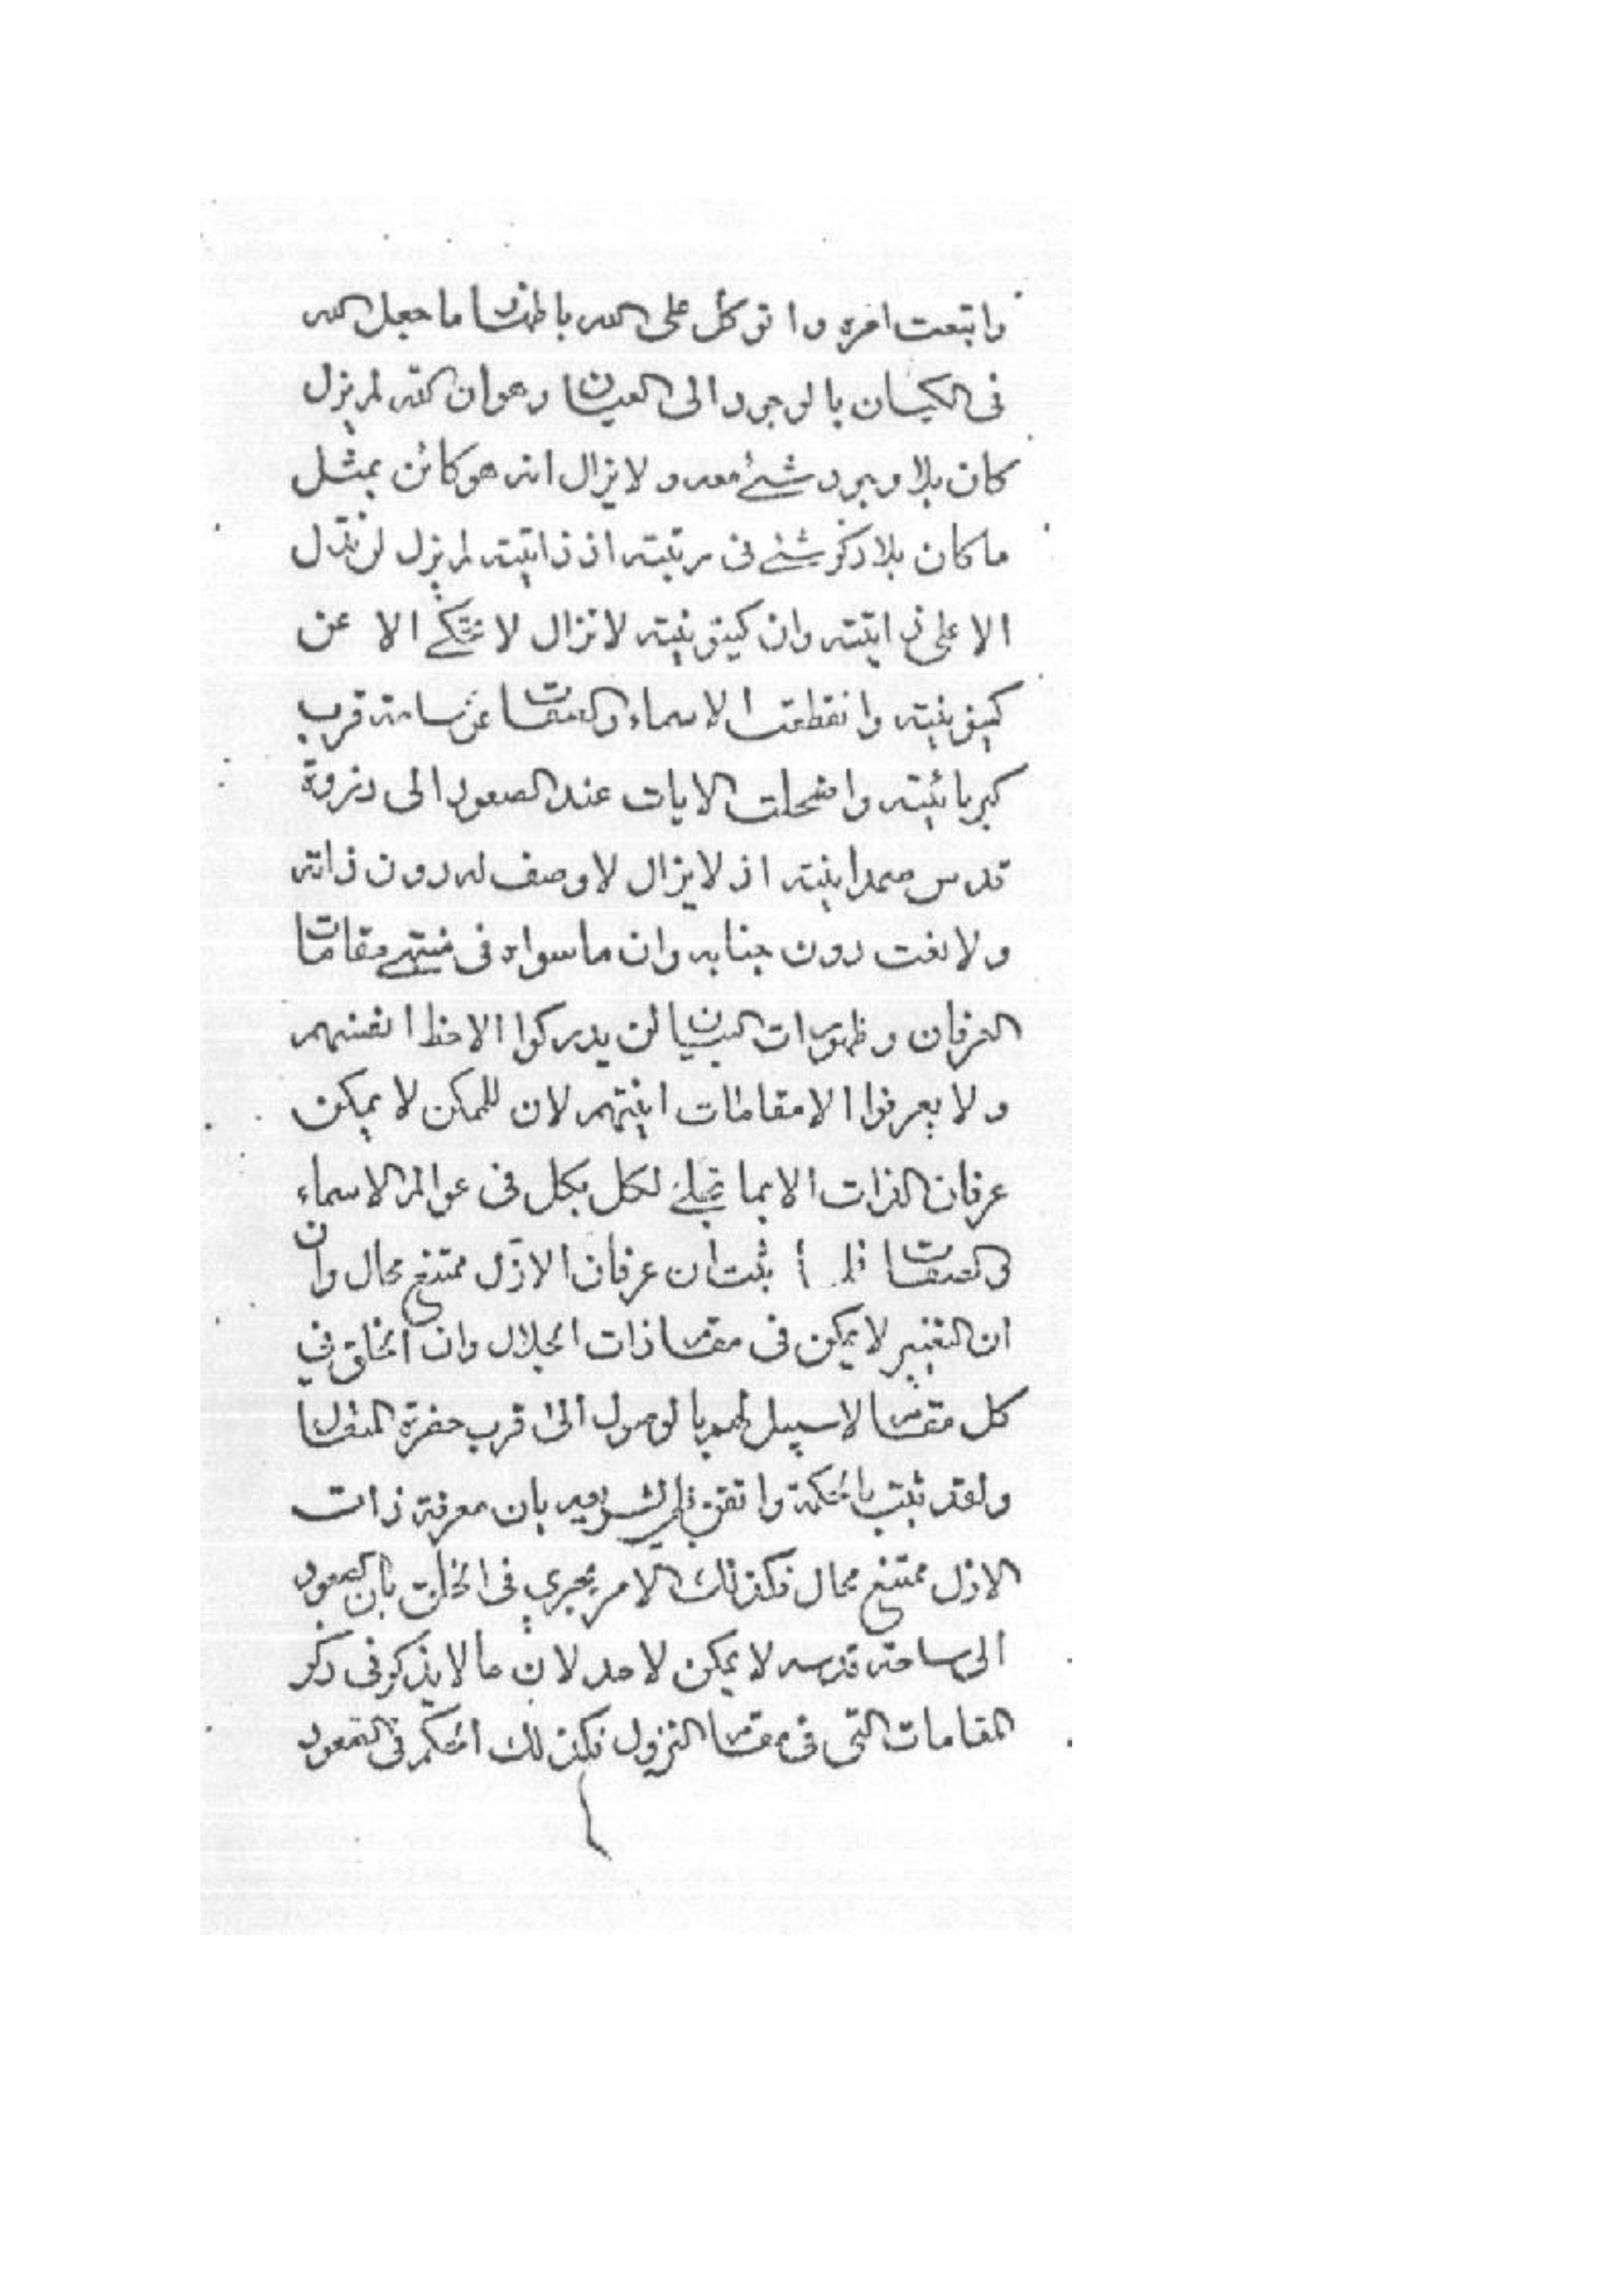 واتبعت امره واتوكل على الله باظهار ما جعل الله
فى الكيان بالوجود الى العيان وهو ان الله لم يزل
كان بلا وجود شئ معه ولا يزال انه هو كائن بمثل
ما كان بلا ذكر شئ فى رتبته اذ ذاتيته لم يزل لن تدل
الا على ذاتيته وان كينونيته لا تزال لا تحكى الا عن
كينونيته وانقطعت الاسماء والصفات عن ساحة قرب
كبريائيته واضمحلت الايات عند الصعود الى ذروة
قدس صمدانيته اذ لا يزال لا وصف له دون ذاته
ولا نعت دون جنابه وان ما سواه فى منتهى مقامات
العرفان وظهورات البيان لن يدركوا الا حظ انفسهم
ولا يعرفوا الا مقامات انيتهم لان للممكن لا يمكن
عرفان الذات الا بما تجلى لكل بكل فى عوالم الاسماء
والصفات فلما ثبت ان عرفان الازل ممتنع محال وان
ان التغيير لا يمكن فى مقام ذات الجلال وان الخلق فى
كل مقام لا سبيل لهم بالوصول الى قرب حضرة المتعال
ولقد ثبت بالحكمة واتقن فى الشريعه بان معرفة ذات
الازل ممتنع محال فكذلك الامر يجرى فى الخلق بان الصعود
الى ساحة قدسه لا يمكن لاحد لان ما لا يذكر فى ذكر
المقامات التى فى مقام النزول فكذلك الحكم فى الصعود